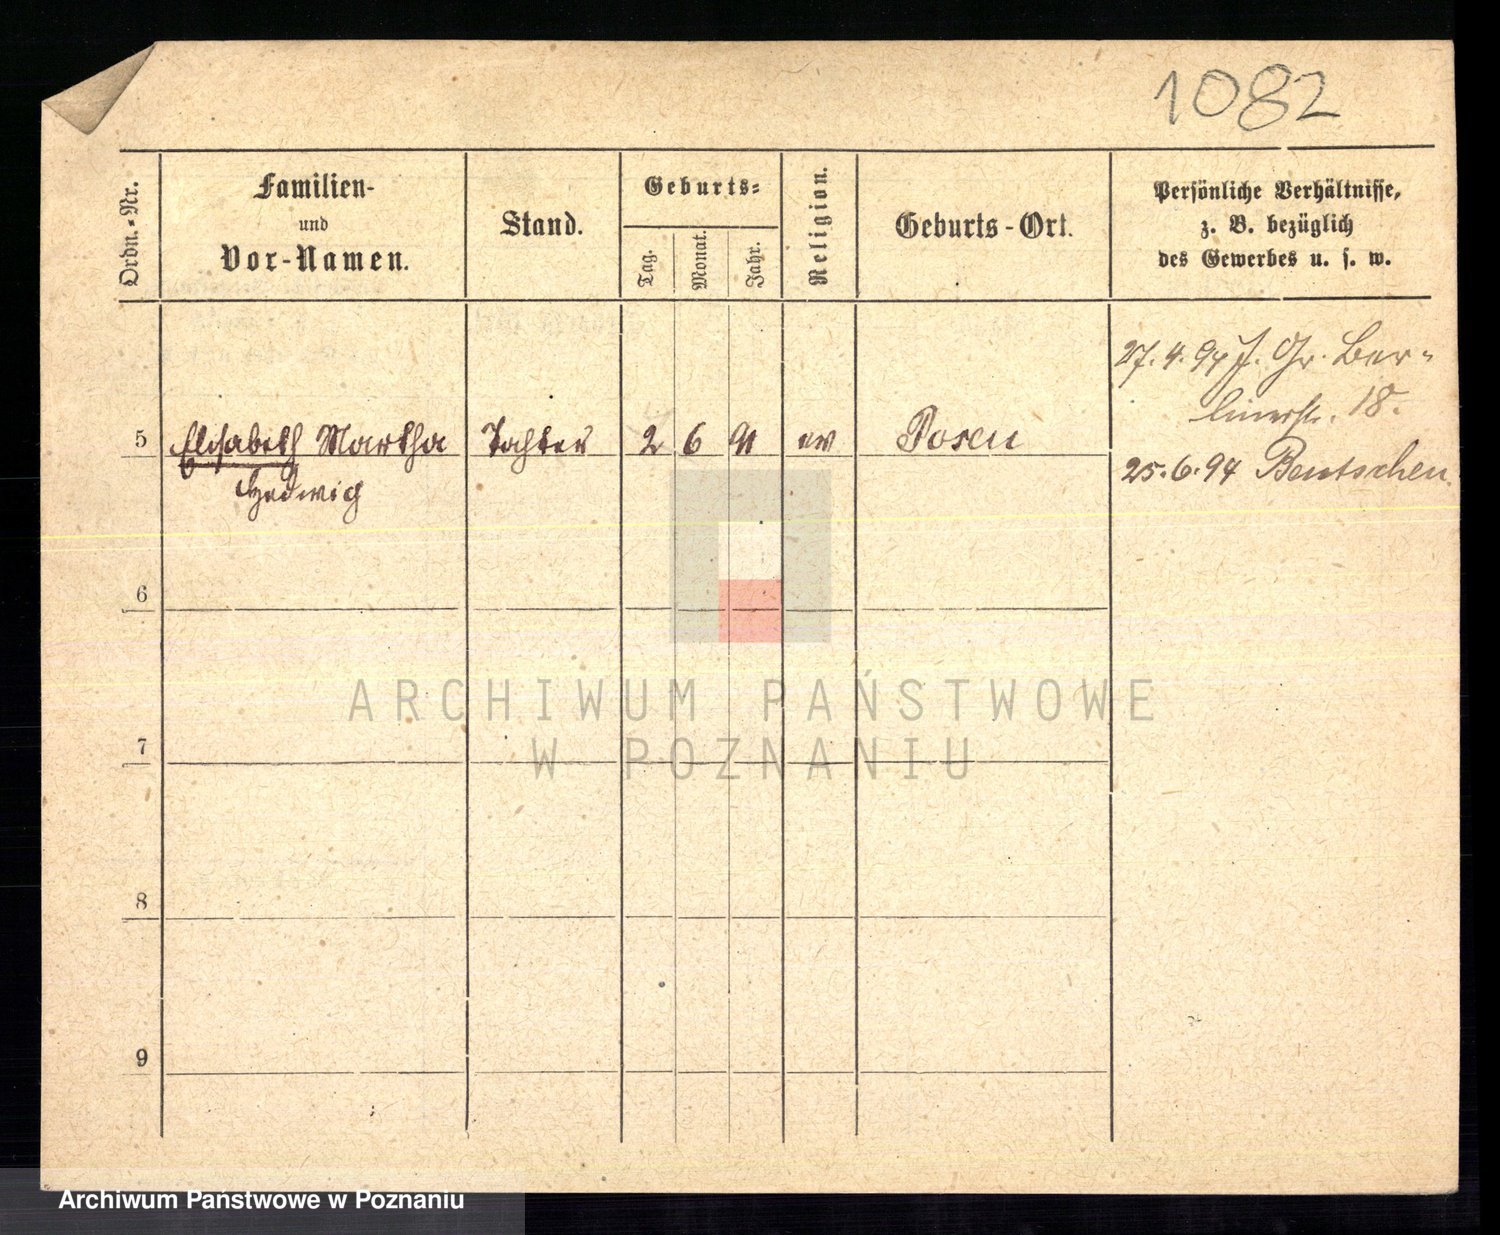 1082
Ordn.-Nr.
Familien-
und
Vor-Namen.
Stand.
Geburts-
Tag.
Monat.
Jahr.
Religion.
Geburts-Ort.
Persönliche Verhältnisse,
z. B. bezüglich
des Gewerbes u. s. w.
27.4.94 J. Gr. Ber-
linerstr. 18.
5 Elisabeth Martha Tochter 2 6 91 ev Posen
Hedwig
25.6.94 Bentschen.
6
7
8
9
ARCHIWUM PAŃSTWOWE
W POZNANIU
Archiwum Państwowe w Poznaniu